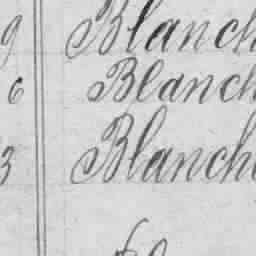 9 Blanch
6 Blanch
3 Blanche